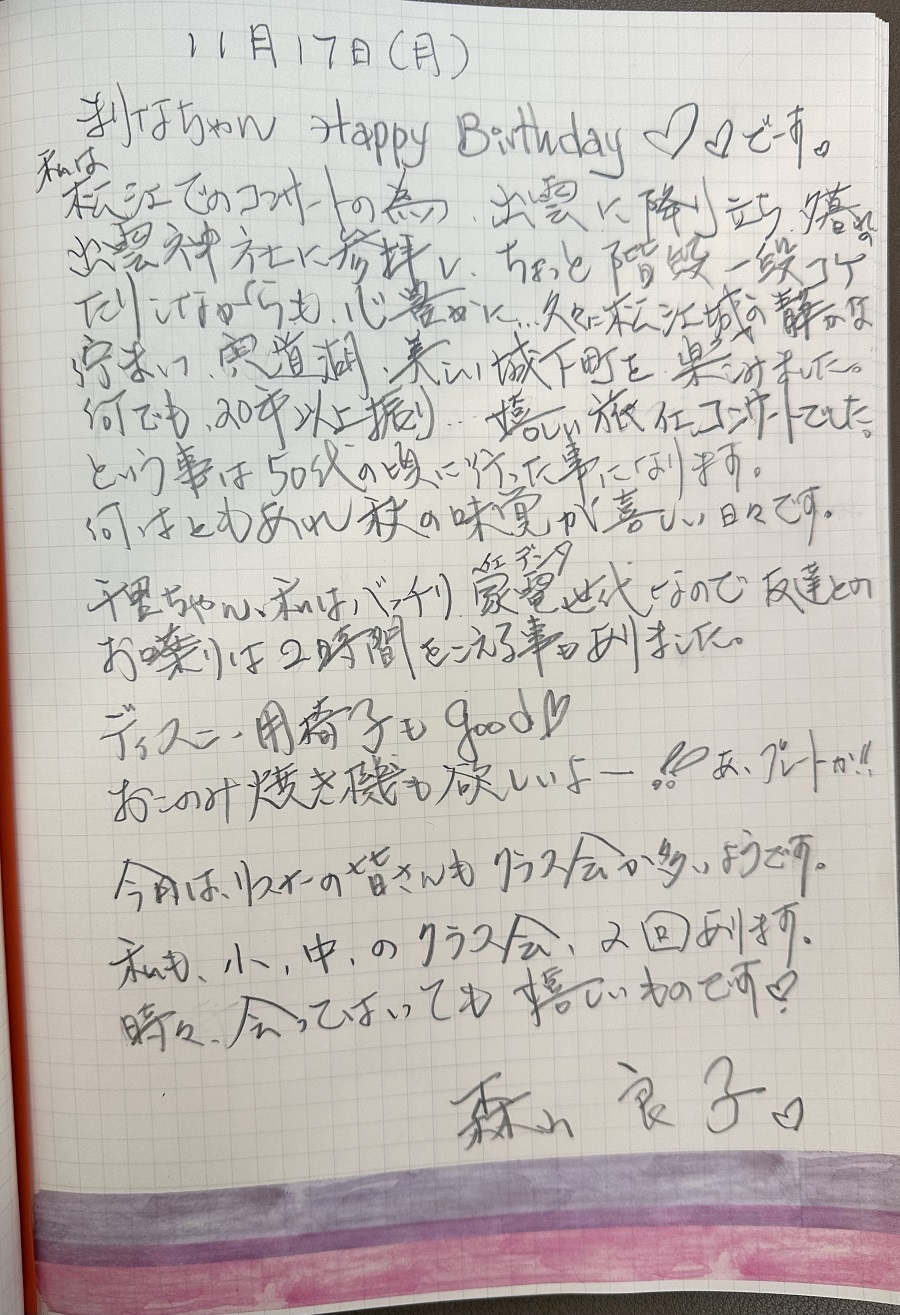 11月17日(月)
まりなちゃん Happy Birthday ♡♡でーす。
私は
松江でのコンサートの為、出雲に降り立ち、夕暮れの
出雲神社に参拝し、ちょっと階段一段コケ
たりしながらも、心豊かに…久々に松江城の静かな
佇まい、宍道湖、美しい城下町を楽しみました。
何でも、20年以上振り… 嬉しい旅、コンサートでした。
という事は50代の頃に行った事になります。
何はともあれ秋の味覚が喜しい日々です。
千里ちゃん、私はバッチリ家電世代なので友達との
イエデンダ
お喋りは2時間をこえる事もありました。
ディズニー用椅子も good♡
おこのみ焼き機も欲しいよー!! あ、プレートか!!
今月は、リスナーの皆さんもクラス会が多いようです。
私も、小、中、のクラス会、2回あります。
時々、会ってはいても嬉しいものです♡
森山良子♡